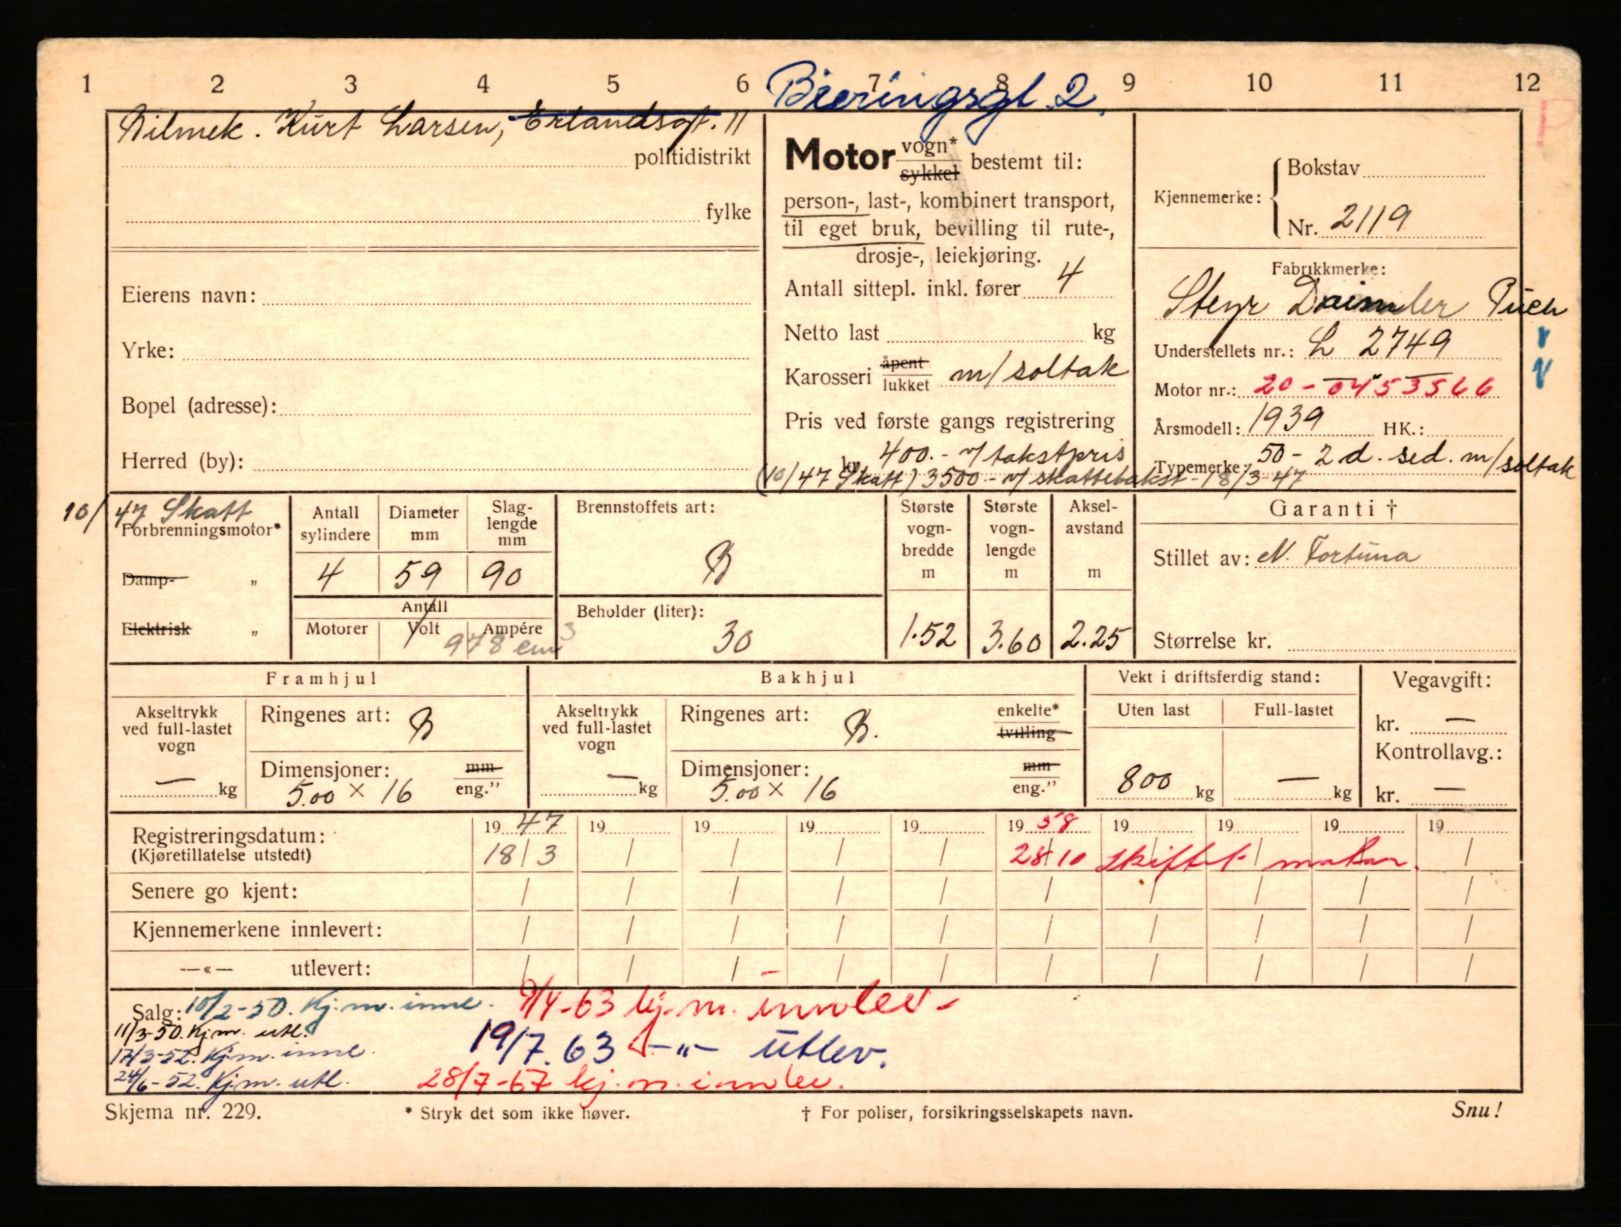 1 2 3 4 5 6 7 8 9 10 11 12
Bieringsgt. 2
P
Bilmek. Kurt Larsen, Erlandsgt. 11
politidistrikt
fylke
Eierens navn:
Yrke:
Bopel (adresse):
Herred (by):
Motor vogn* sykkel bestemt til:
person-, last-, kombinert transport,
til eget bruk, bevilling til rute-,
drosje-, leiekjøring.
Antall sittepl. inkl. fører 4
Netto last kg
Karosseri åpent lukket m/soltak
Pris ved første gangs registrering
kr. 400.- / takstpris
(10/47 Skatt) 3500.- / skattetakst - 18/3-47
Kjennemerke: Bokstav
Nr. 2119
Fabrikkmerke:
Steyr Daimler Puch
Understellets nr.: L 2749
Motor nr.: 20-0453566
Årsmodell: 1939 HK.:
Typemerke: 50 - 2 d. sed. m/soltak
10/47 Skatt
Forbrenningsmotor*
Damp- „
Elektrisk „
Antall sylindere
Diameter mm
Slaglengde mm
4 59 90
Antall
Motorer Volt Ampére
978 cm3
Brennstoffets art:
B
Beholder (liter):
30
Største vognbredde m
Største vognlengde m
Akselavstand m
1.52 3.60 2.25
Garanti †
Stillet av: N. Fortuna
Størrelse kr.
Framhjul
Akseltrykk ved full-lastet vogn
— kg
Ringenes art: B
Dimensjoner: mm eng.”
5.00 × 16
Bakhjul
Akseltrykk ved full-lastet vogn
— kg
Ringenes art: B. enkelte* tvilling
Dimensjoner: mm eng.”
5.00 × 16
Vekt i driftsferdig stand:
Uten last Full-lastet
800 kg — kg
Vegavgift:
kr. —
Kontrollavg.:
kr. —
Registreringsdatum: 1947 19 19 19 19 1958 19 19 19 19
(Kjøretillatelse utstedt) 18/3 / / / / 28/10 skiftet motor.
Senere go kjent: / / / / / / / / / /
Kjennemerkene innlevert: / / / / / / / / / /
—«— utlevert: / / / / / / / / / /
Salg: 10/2-50. Kj.m. innl. 9/4-63 kj.m. innlev-
11/3-50 Kj.m. utl.
17/3-52. Kj.m. innl. 19/7.63 -„- utlev.
24/6-52. Kj.m. utl. 28/7-67 kj.m. innlev.
Skjema nr. 229. * Stryk det som ikke høver. † For poliser, forsikringsselskapets navn. Snu!